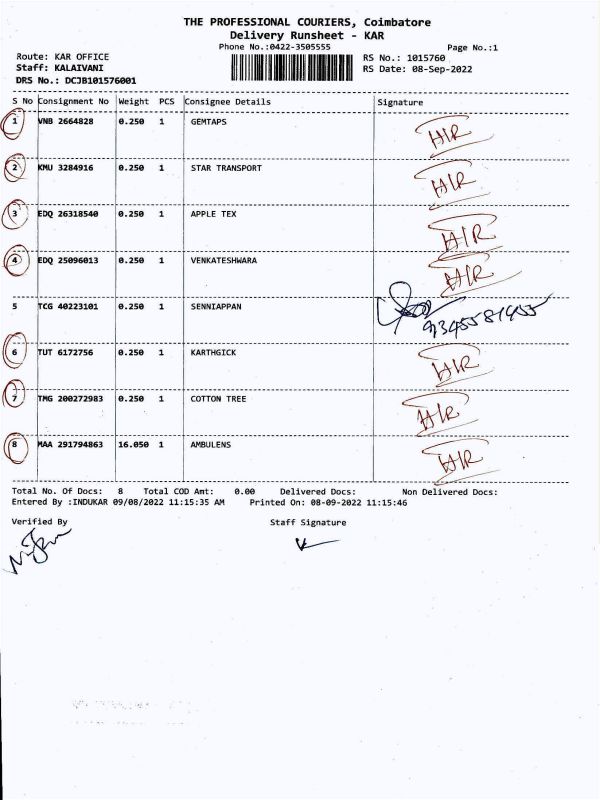 THE PROFESSIONAL COURIERS, Coimbatore
Delivery Runsheet - KAR
Phone No.:0422-3505555 Page No.:1
Route: KAR OFFICE RS No.: 1015760
Staff: KALAIVANI RS Date: 08-Sep-2022
DRS No.: DCJB101576001
S No Consignment No Weight PCS Consignee Details Signature
1 VNB 2664828 0.250 1 GEMTAPS HIR
2 KMU 3284916 0.250 1 STAR TRANSPORT HIR
3 EDQ 26318540 0.250 1 APPLE TEX HIR
4 EDQ 25096013 0.250 1 VENKATESHWARA HIR
5 TCG 40223101 0.250 1 SENNIAPPAN
6 TUT 6172756 0.250 1 KARTHGICK HIR
7 TMG 200272983 0.250 1 COTTON TREE HIR
8 MAA 291794863 16.050 1 AMBULENS HIR
Total No. Of Docs: 8 Total COD Amt: 0.00 Delivered Docs: Non Delivered Docs:
Entered By :INDUKAR 09/08/2022 11:15:35 AM Printed On: 08-09-2022 11:15:46
Verified By Staff Signature